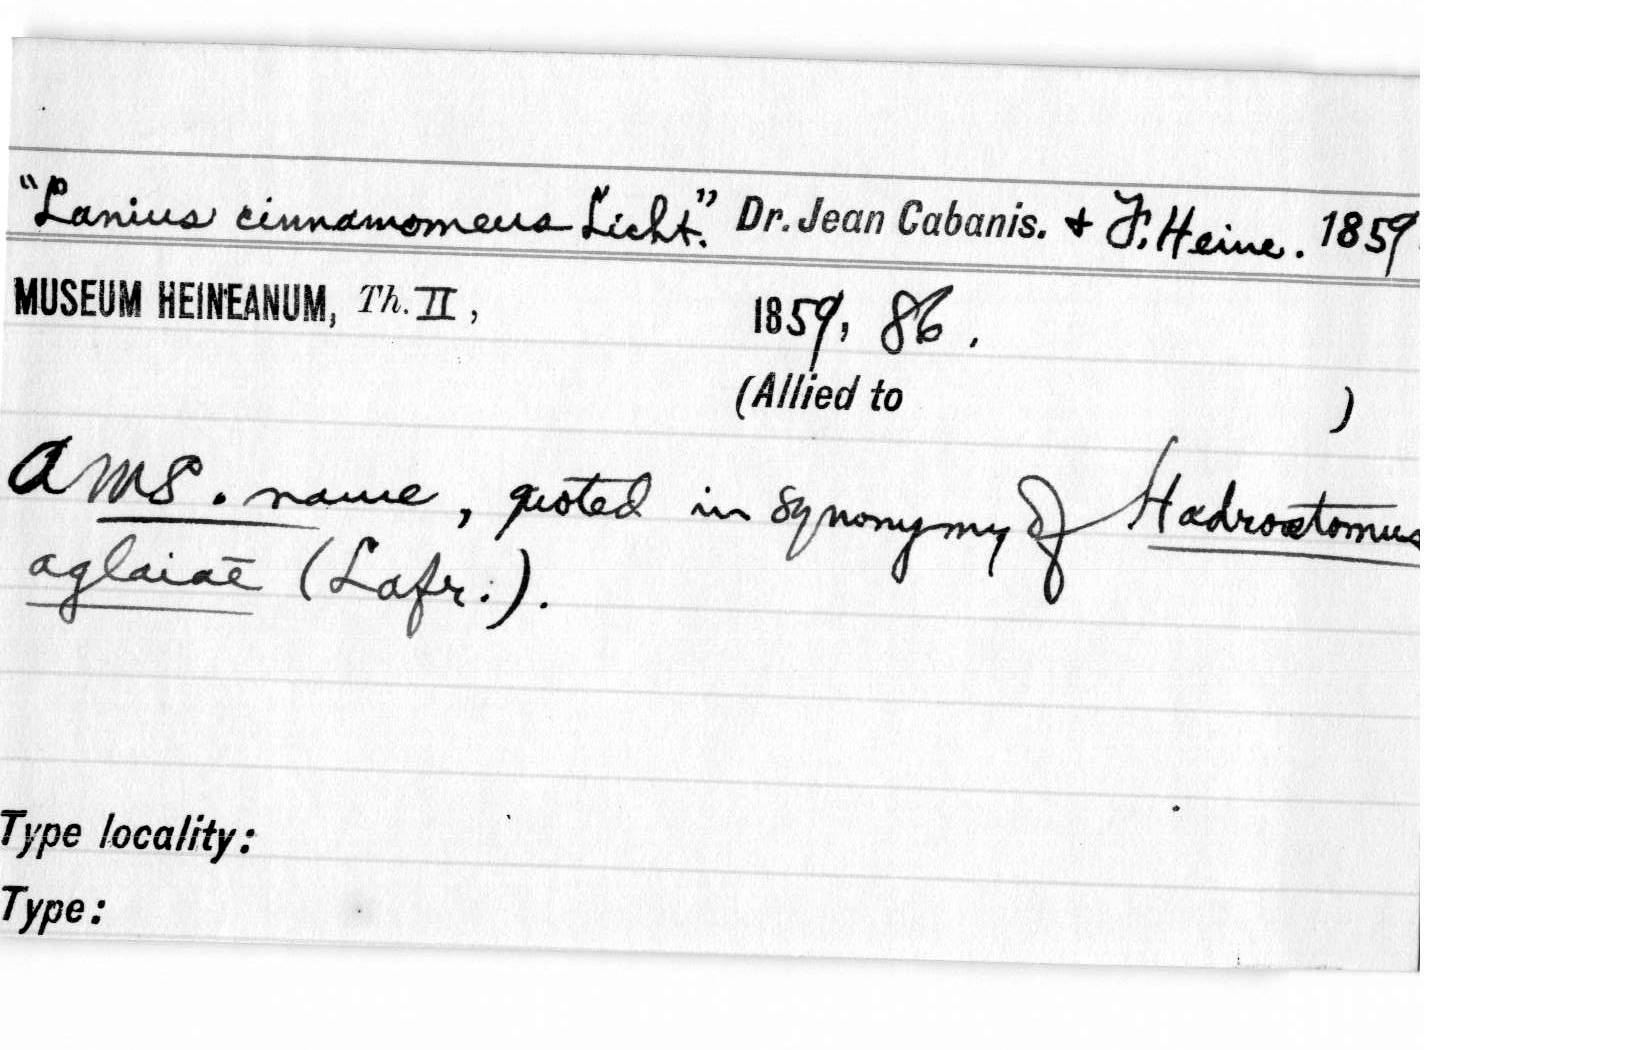 "Lanius cinnamomeus Licht." Dr. Jean Cabanis. & F. Heine. 1859
MUSEUM HEINEANUM, Th. II, 1859, 86.
(Allied to )
A MS. name, quoted in synonymy of Hadrostomus
aglaiae (Lafr.).
Type locality:
Type: